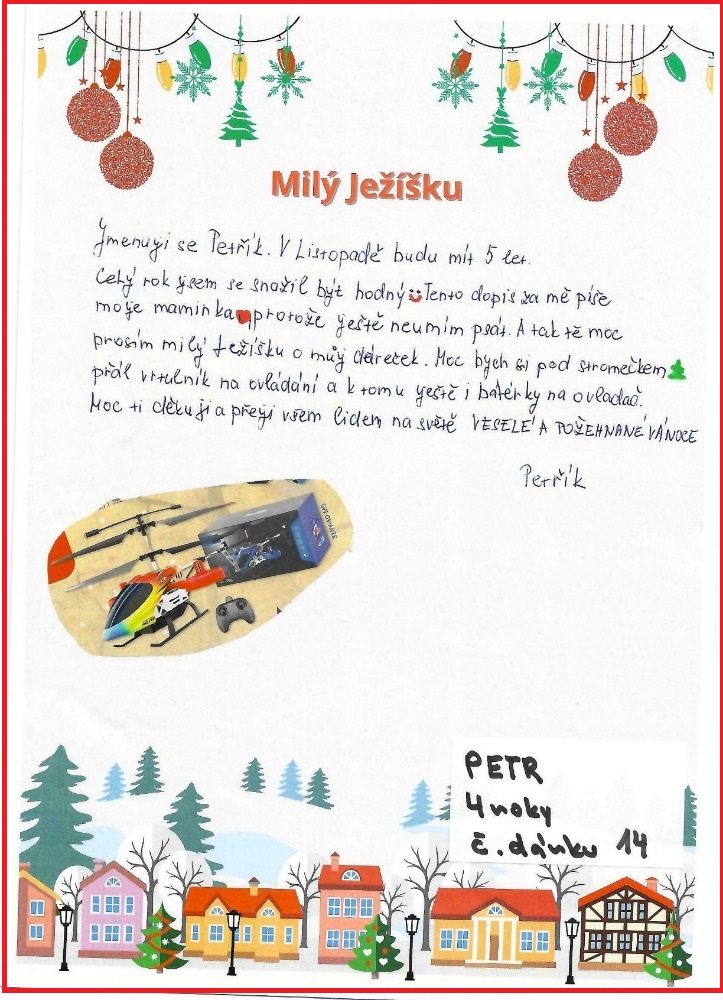 Milý Ježíšku
Jmenuji se Petřík. V Listopadě budu mít 5 let.
Celý rok jsem se snažil být hodný Tento dopis za mě píše
moje maminka protože ještě neumím psát. A tak tě moc
prosím milý Ježíšku o můj dáreček. Moc bych si pod stromečkem
přál vrtulník na ovládání a k tomu ještě i baterky na ovladač.
Moc ti děkuji a přeji všem lidem na světě VESELÉ A POŽEHNANÉ VÁNOCE
Petřík
PETR
4 roky
č. dárku 14